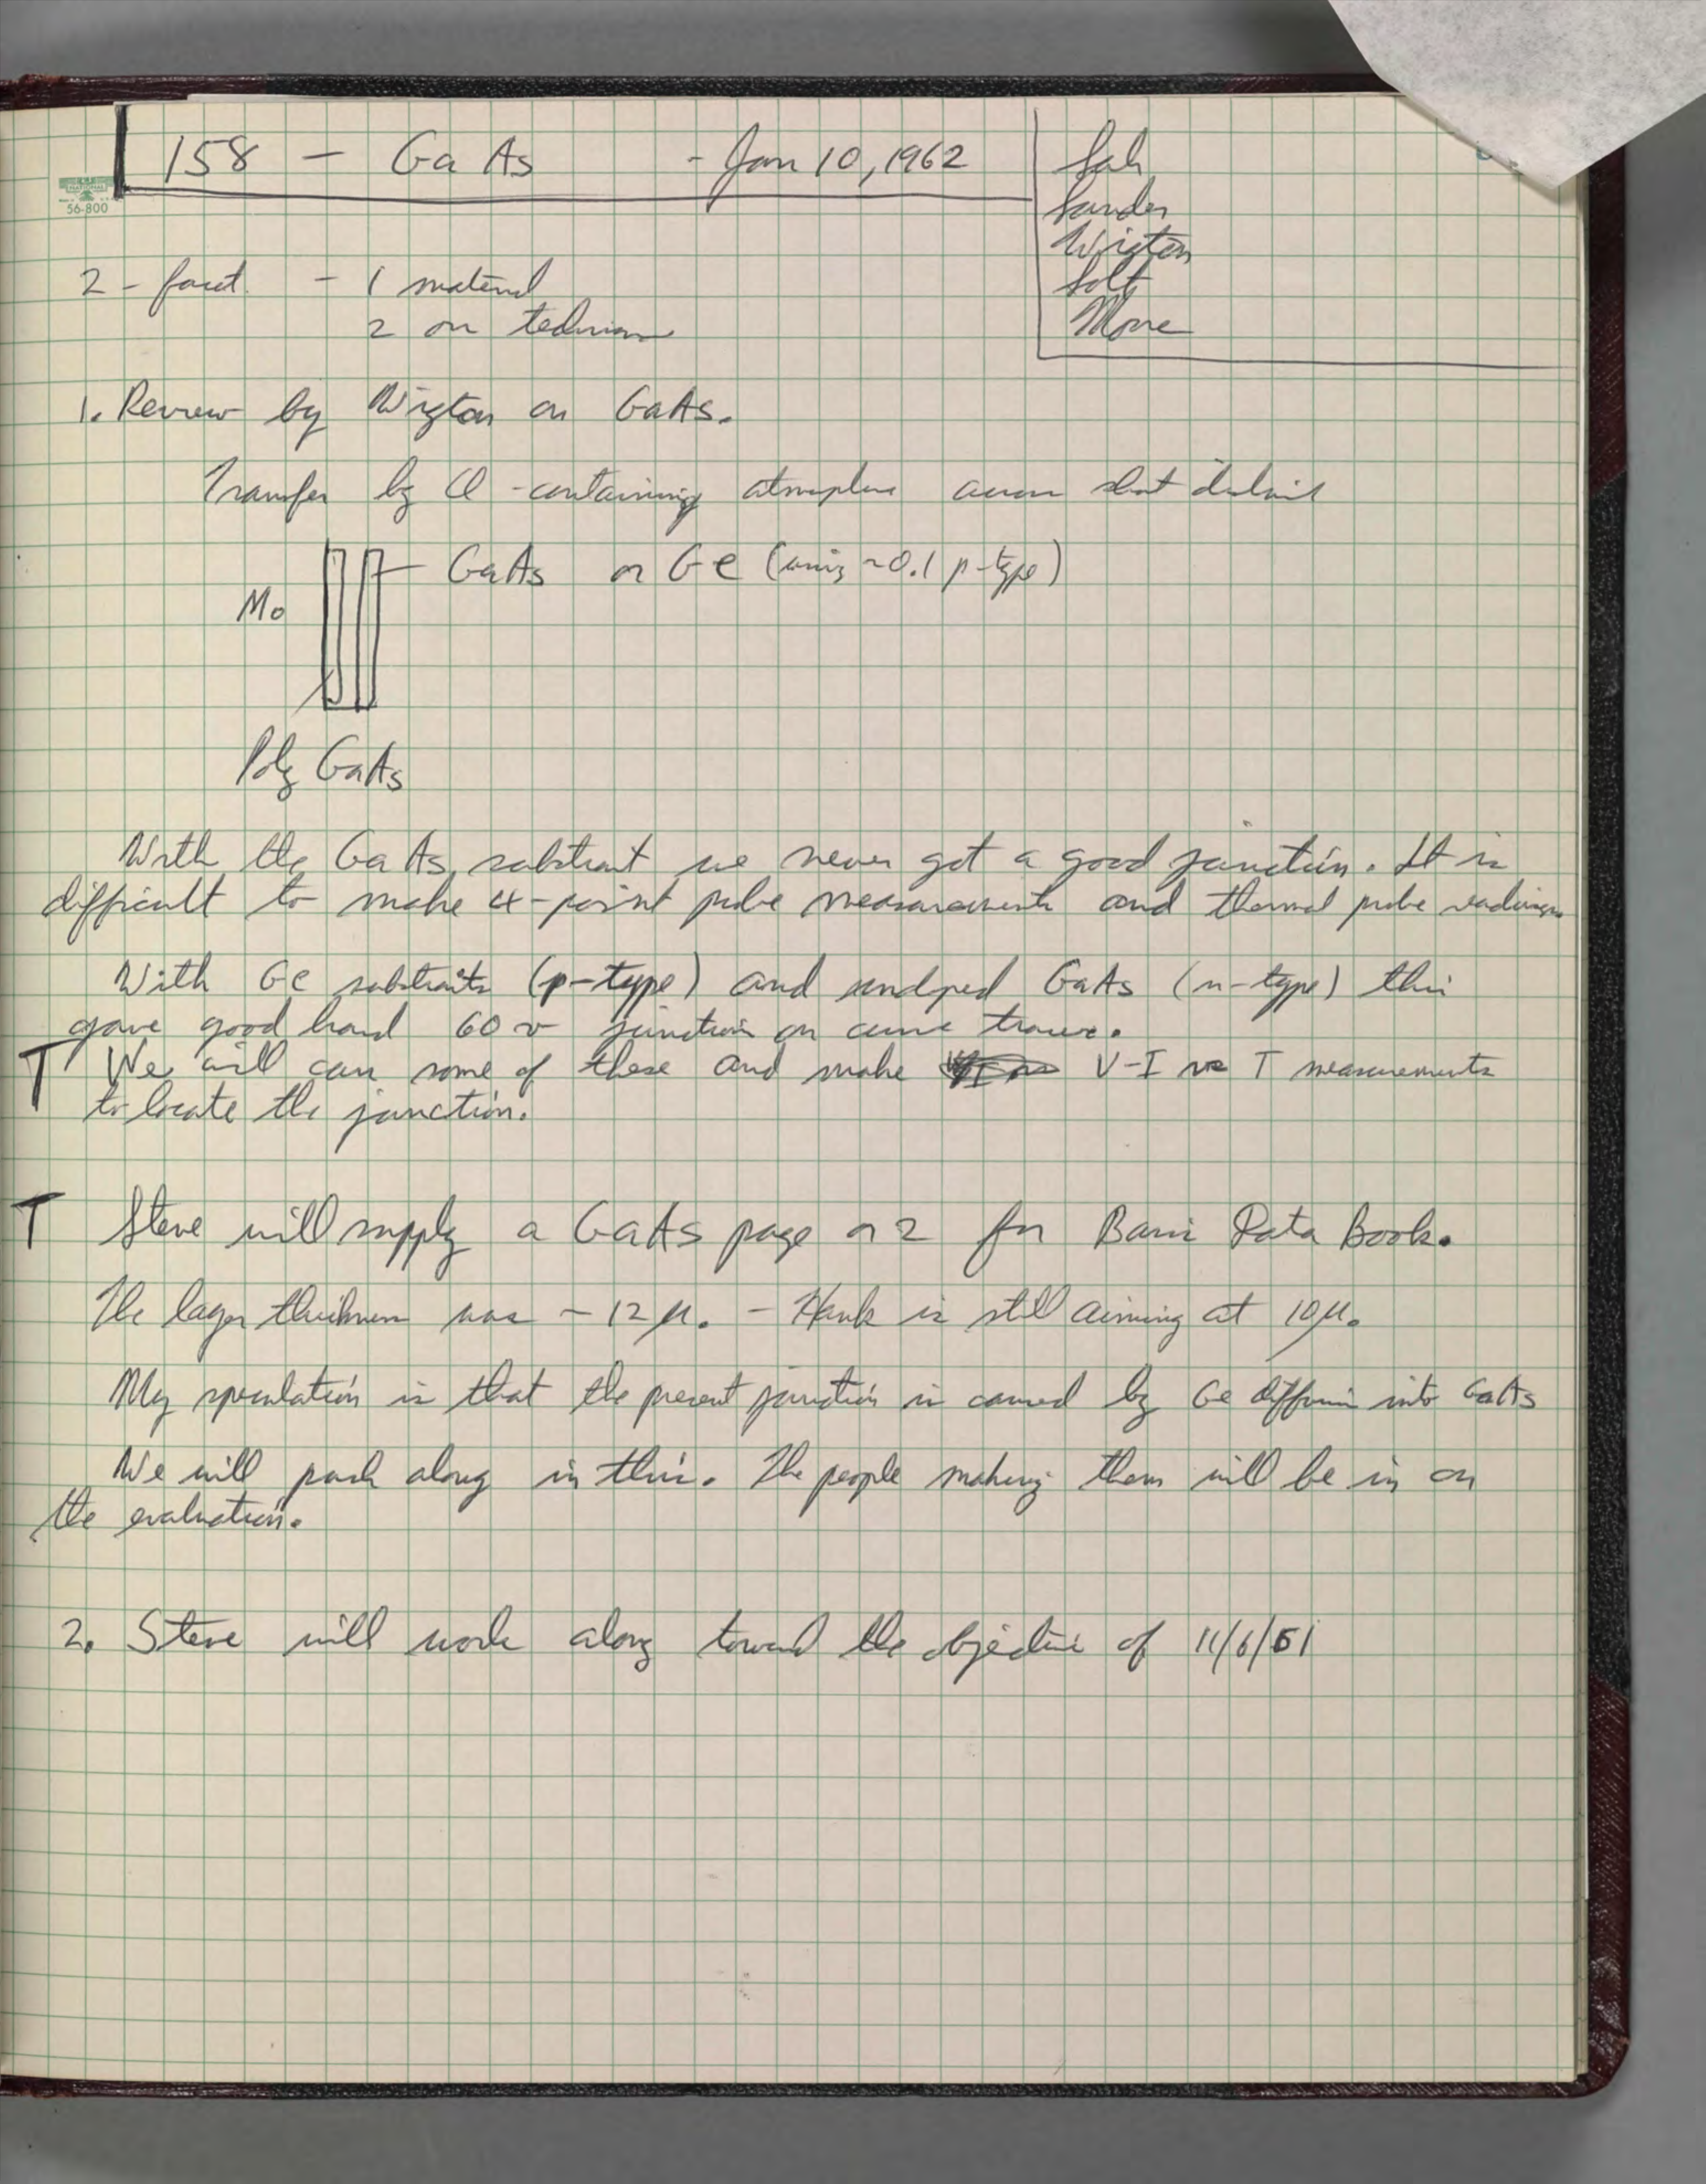 158 - GaAs - Jan 10, 1962
Sah
Sandor
Wigton
Solt
Moore
NATIONAL
56-800
2 - facet - 1 material
2 on
1. Review by Wigton on GaAs.
Transfer by Cl-containing atmosphere across short distance
GaAs or Ge (using ~0.1 p-type)
Mo
Poly GaAs
With the GaAs substrate we never got a good junction. It is
difficult to make 4-point probe measurements and thermal probe readings
With Ge substrates (p-type) and undoped GaAs (n-type) this
gave good hard 60 v junction on curve tracer.
T We will can some of these and make V-I vs T measurements
to locate the junction.
T Steve will supply a GaAs page or 2 for Basic Data Book.
The layer thickness was ~12μ. - Hank is still aiming at 10μ.
My speculation is that the present junction is caused by Ge diffusion into GaAs
We will push along in this. The people making them will be in on
the evaluation.
2. Steve will work along toward the objective of 11/6/61